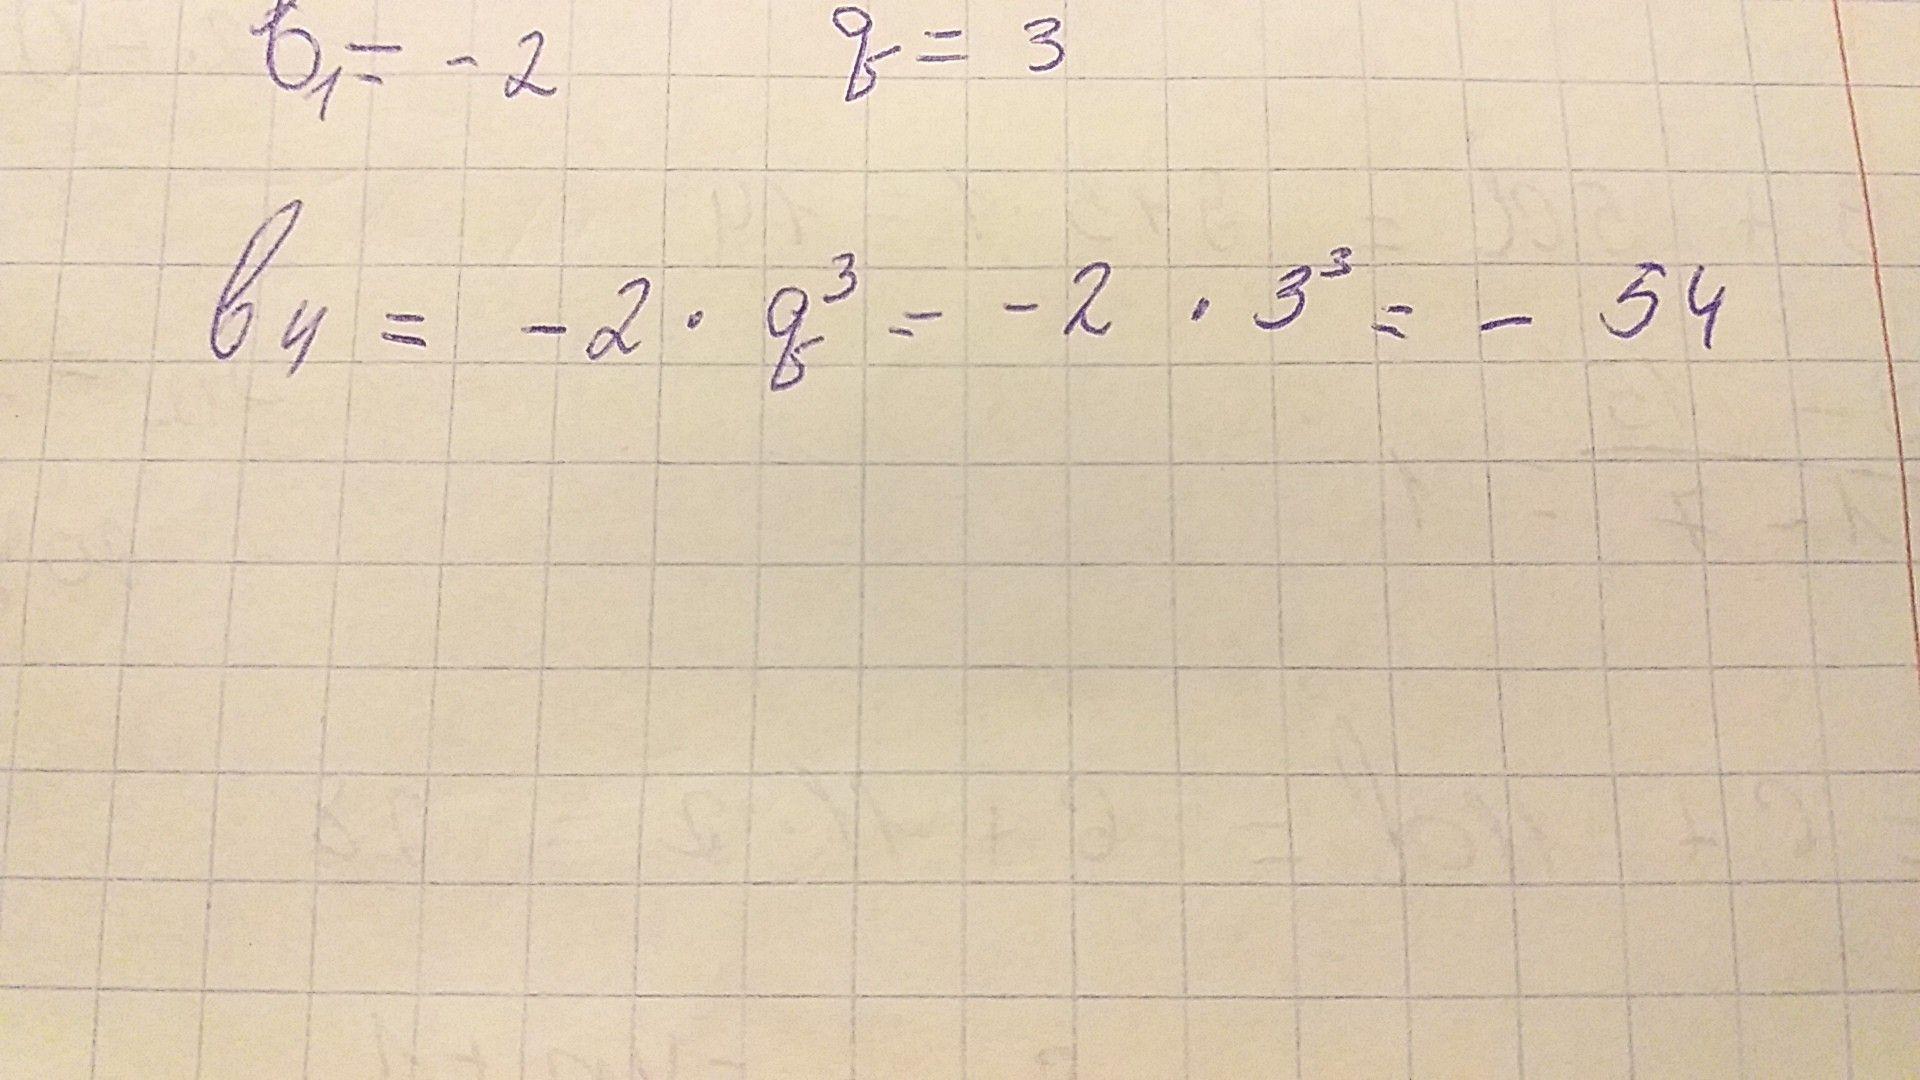 b₁ = -2 q = 3
b₄ = -2 · q³ = -2 · 3³ = - 54